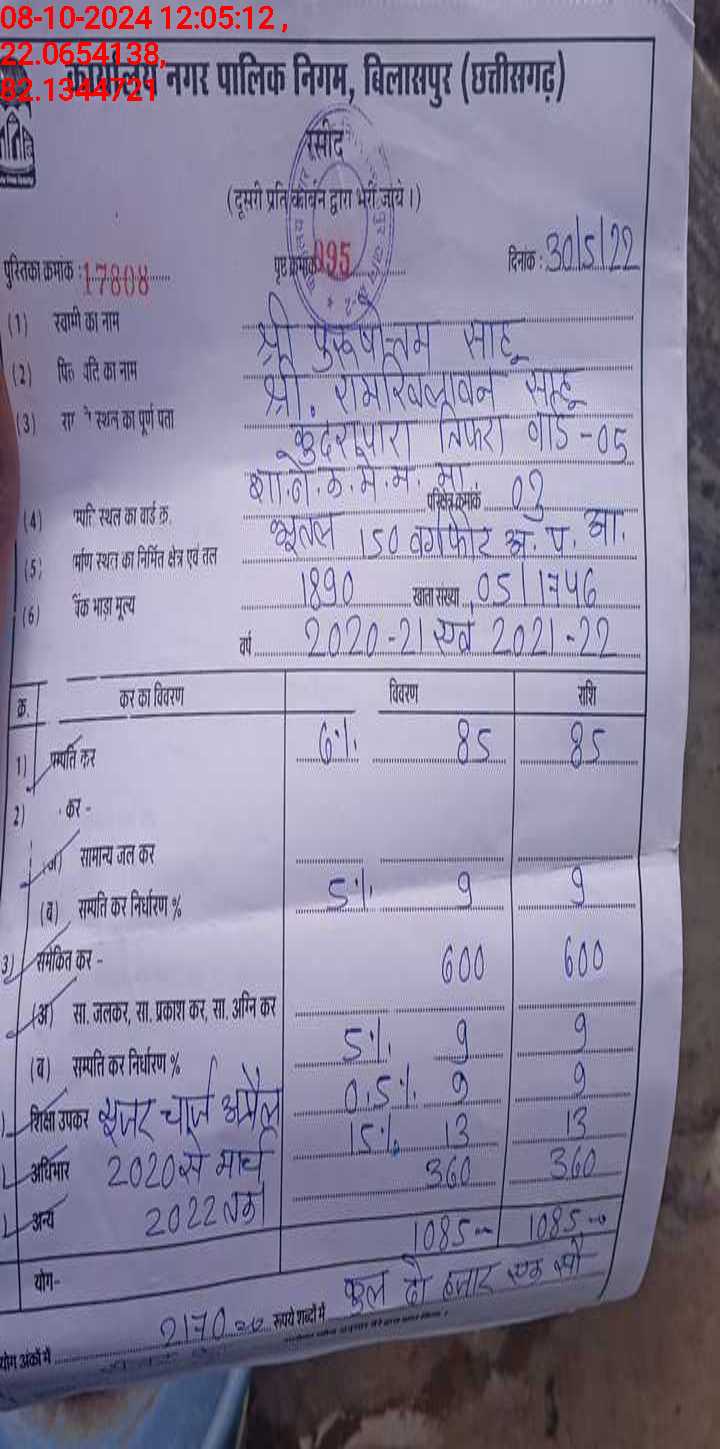 08-10-2024 12:05:12 ,
22.0654138,
82.1344721
कार्यालय नगर पालिक निगम, बिलासपुर (छत्तीसगढ़)
रसीद
(दूसरी प्रति कार्बन द्वारा भरी जाये।)
पुस्तिका क्रमांक : 17808 पृष्ठ क्रमांक 095 दिनांक : 30/5/22
(1) स्वामी का नाम श्री पुरूषोत्तम साहू
(2) पिता पति का नाम श्री. रामखिलावन साहू
(3) स्थल का पूर्ण पता कुदरापारा तिफरा वार्ड-05
(4) स्थल का वार्ड क्र. परिक्षेत्र क्रमांक 03
(5) स्थल का निर्मित क्षेत्र एवं तल भूतल 150 वर्गफीट अ. प. आ.
(6) भाड़ा मूल्य 1890 खाता संख्या 05/1746
वर्ष 2020-21 एवं 2021-22
क्र. कर का विवरण विवरण राशि
1) सम्पति कर 6%. 85 85
2) कर -
(अ) सामान्य जल कर
(ब) सम्पति कर निर्धारण % 5%. 9 9
3) समेकित कर - 600 600
(अ) सा. जलकर, सा. प्रकाश कर, सा. अग्नि कर
(ब) सम्पति कर निर्धारण % 5%. 9 9
शिक्षा उपकर यूजर चार्ज अप्रैल 0.5%. 9 9
अधिभार 2020 से मार्च 15%. 13 13
अन्य 2022 तक 360 360
योग- 1085 1085
योग अंकों में 2170 रूपये शब्दों में कुल दो हजार एक सौ